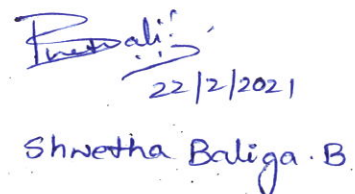 22/2/2021
Shwetha Baliga. B